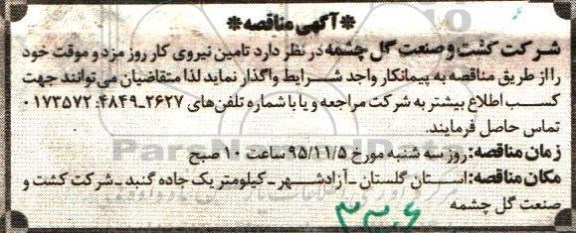 *آگهی مناقصه*
شرکت کشت و صنعت گل چشمه در نظر دارد تامین نیروی کار روز مزد و موقت خود
را از طریق مناقصه به پیمانکار واجد شرایط واگذار نماید لذا متقاضیان می توانند جهت
کسب اطلاع بیشتر به شرکت مراجعه و یا با شماره تلفن های ۲۶۲۷ـ۴۸۴۹: ۰۱۷۳۵۷۲
تماس حاصل فرمایند.
زمان مناقصه: روز سه شنبه مورخ ۹۵/۱۱/۵ ساعت ۱۰ صبح
مکان مناقصه: استان گلستان ـ آزادشهر ـ کیلومتر یک جاده گنبد ـ شرکت کشت و
صنعت گل چشمه
۳۳۰۶